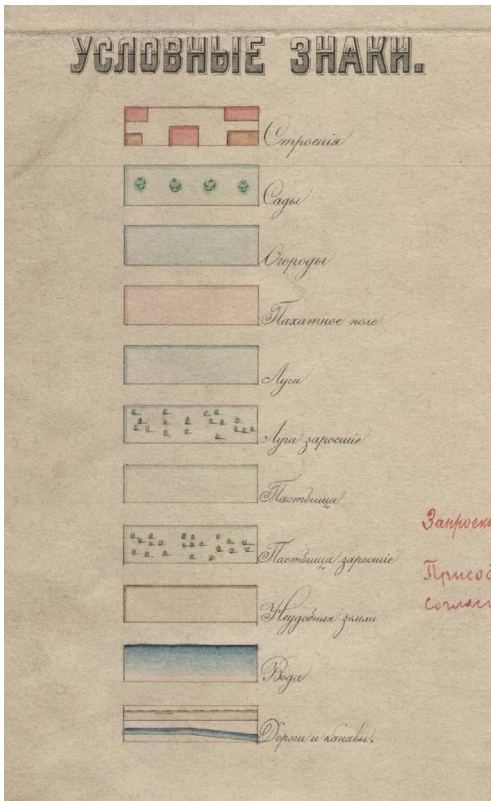 УСЛОВНЫЕ ЗНАКИ.
Строенія
Сады
Огороды
Пахатное поле
Луга
Луга заросшіе
Пастбища
Пастбища заросшіе
Неудобныя земли
Вода
Дороги и канавы.